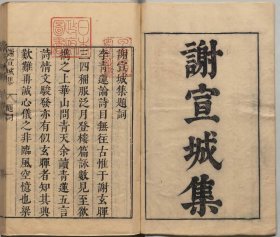 謝宣城集
謝宣城集題詞
李青蓮論詩目無往古惟于謝玄暉
三四稱服泛月登樓篇詠數見至欲
携之上華山問青天余讀青蓮五言
詩情文駿發亦有似玄暉者知其興
歎難再誠心儀之非臨風空憶也梁
謝宣城集
題詞